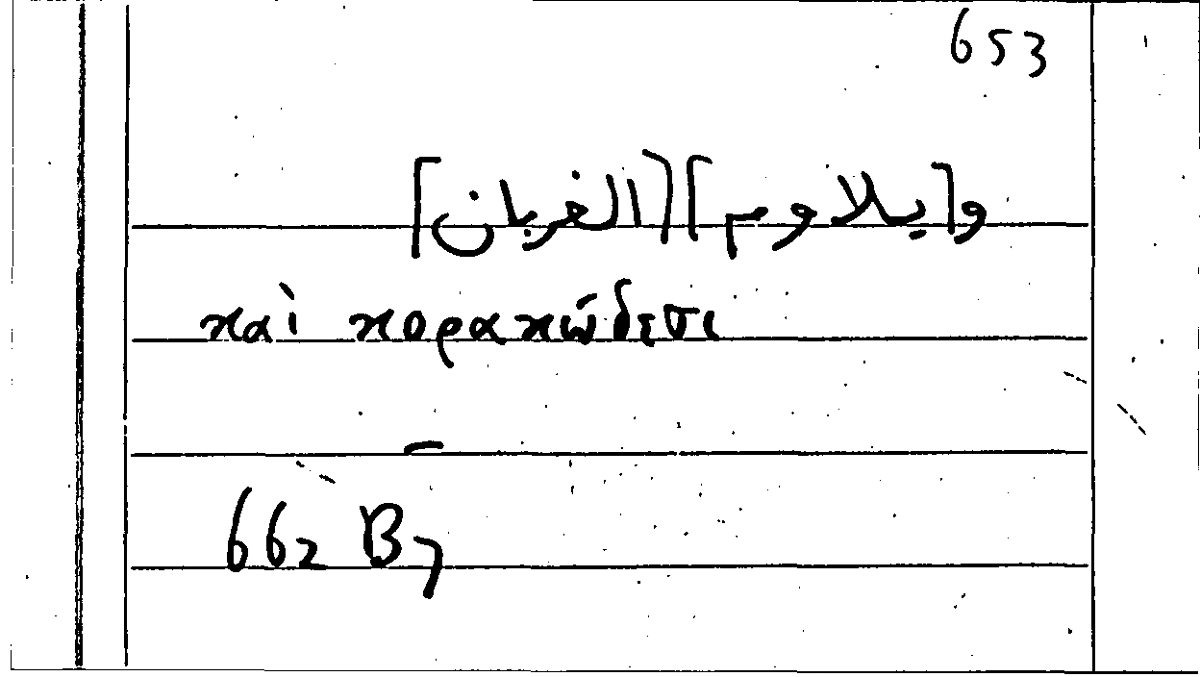 653
و[يلاوم][الغربان]
καὶ κορακώδεσι
–
662 B7